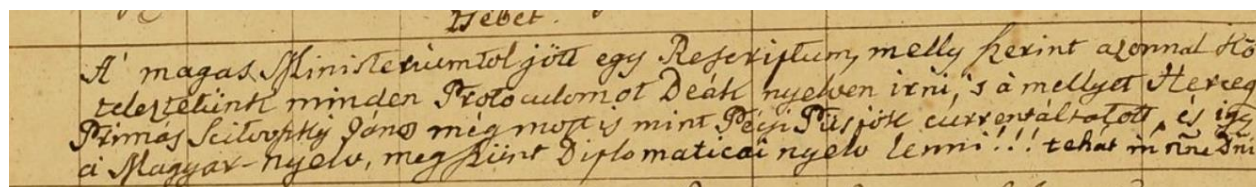 Hebet.
A' magas Ministeriumtol jött egy Rescriptum, melly szerint azonnal Kö
teleztetünk minden Protoculomot Deák nyelven irni, 's à mellyet Herceg
Primas Scitovszky János még most is mint Pécsi Püspök currentáltatott, és igy
a' Magyar-nyelv, meg szünt Diplomaticai nyelv lenni!!! tehát in nñe Dni